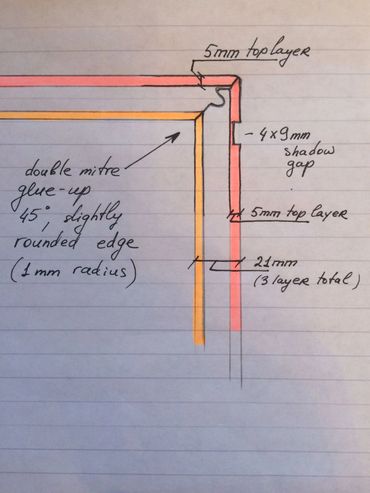 5mm top layer
- 4x9mm
shadow
gap
double mitre
glue-up
45°, slightly
rounded edge
(1mm radius)
5mm top layer
21mm
(3 layer total)